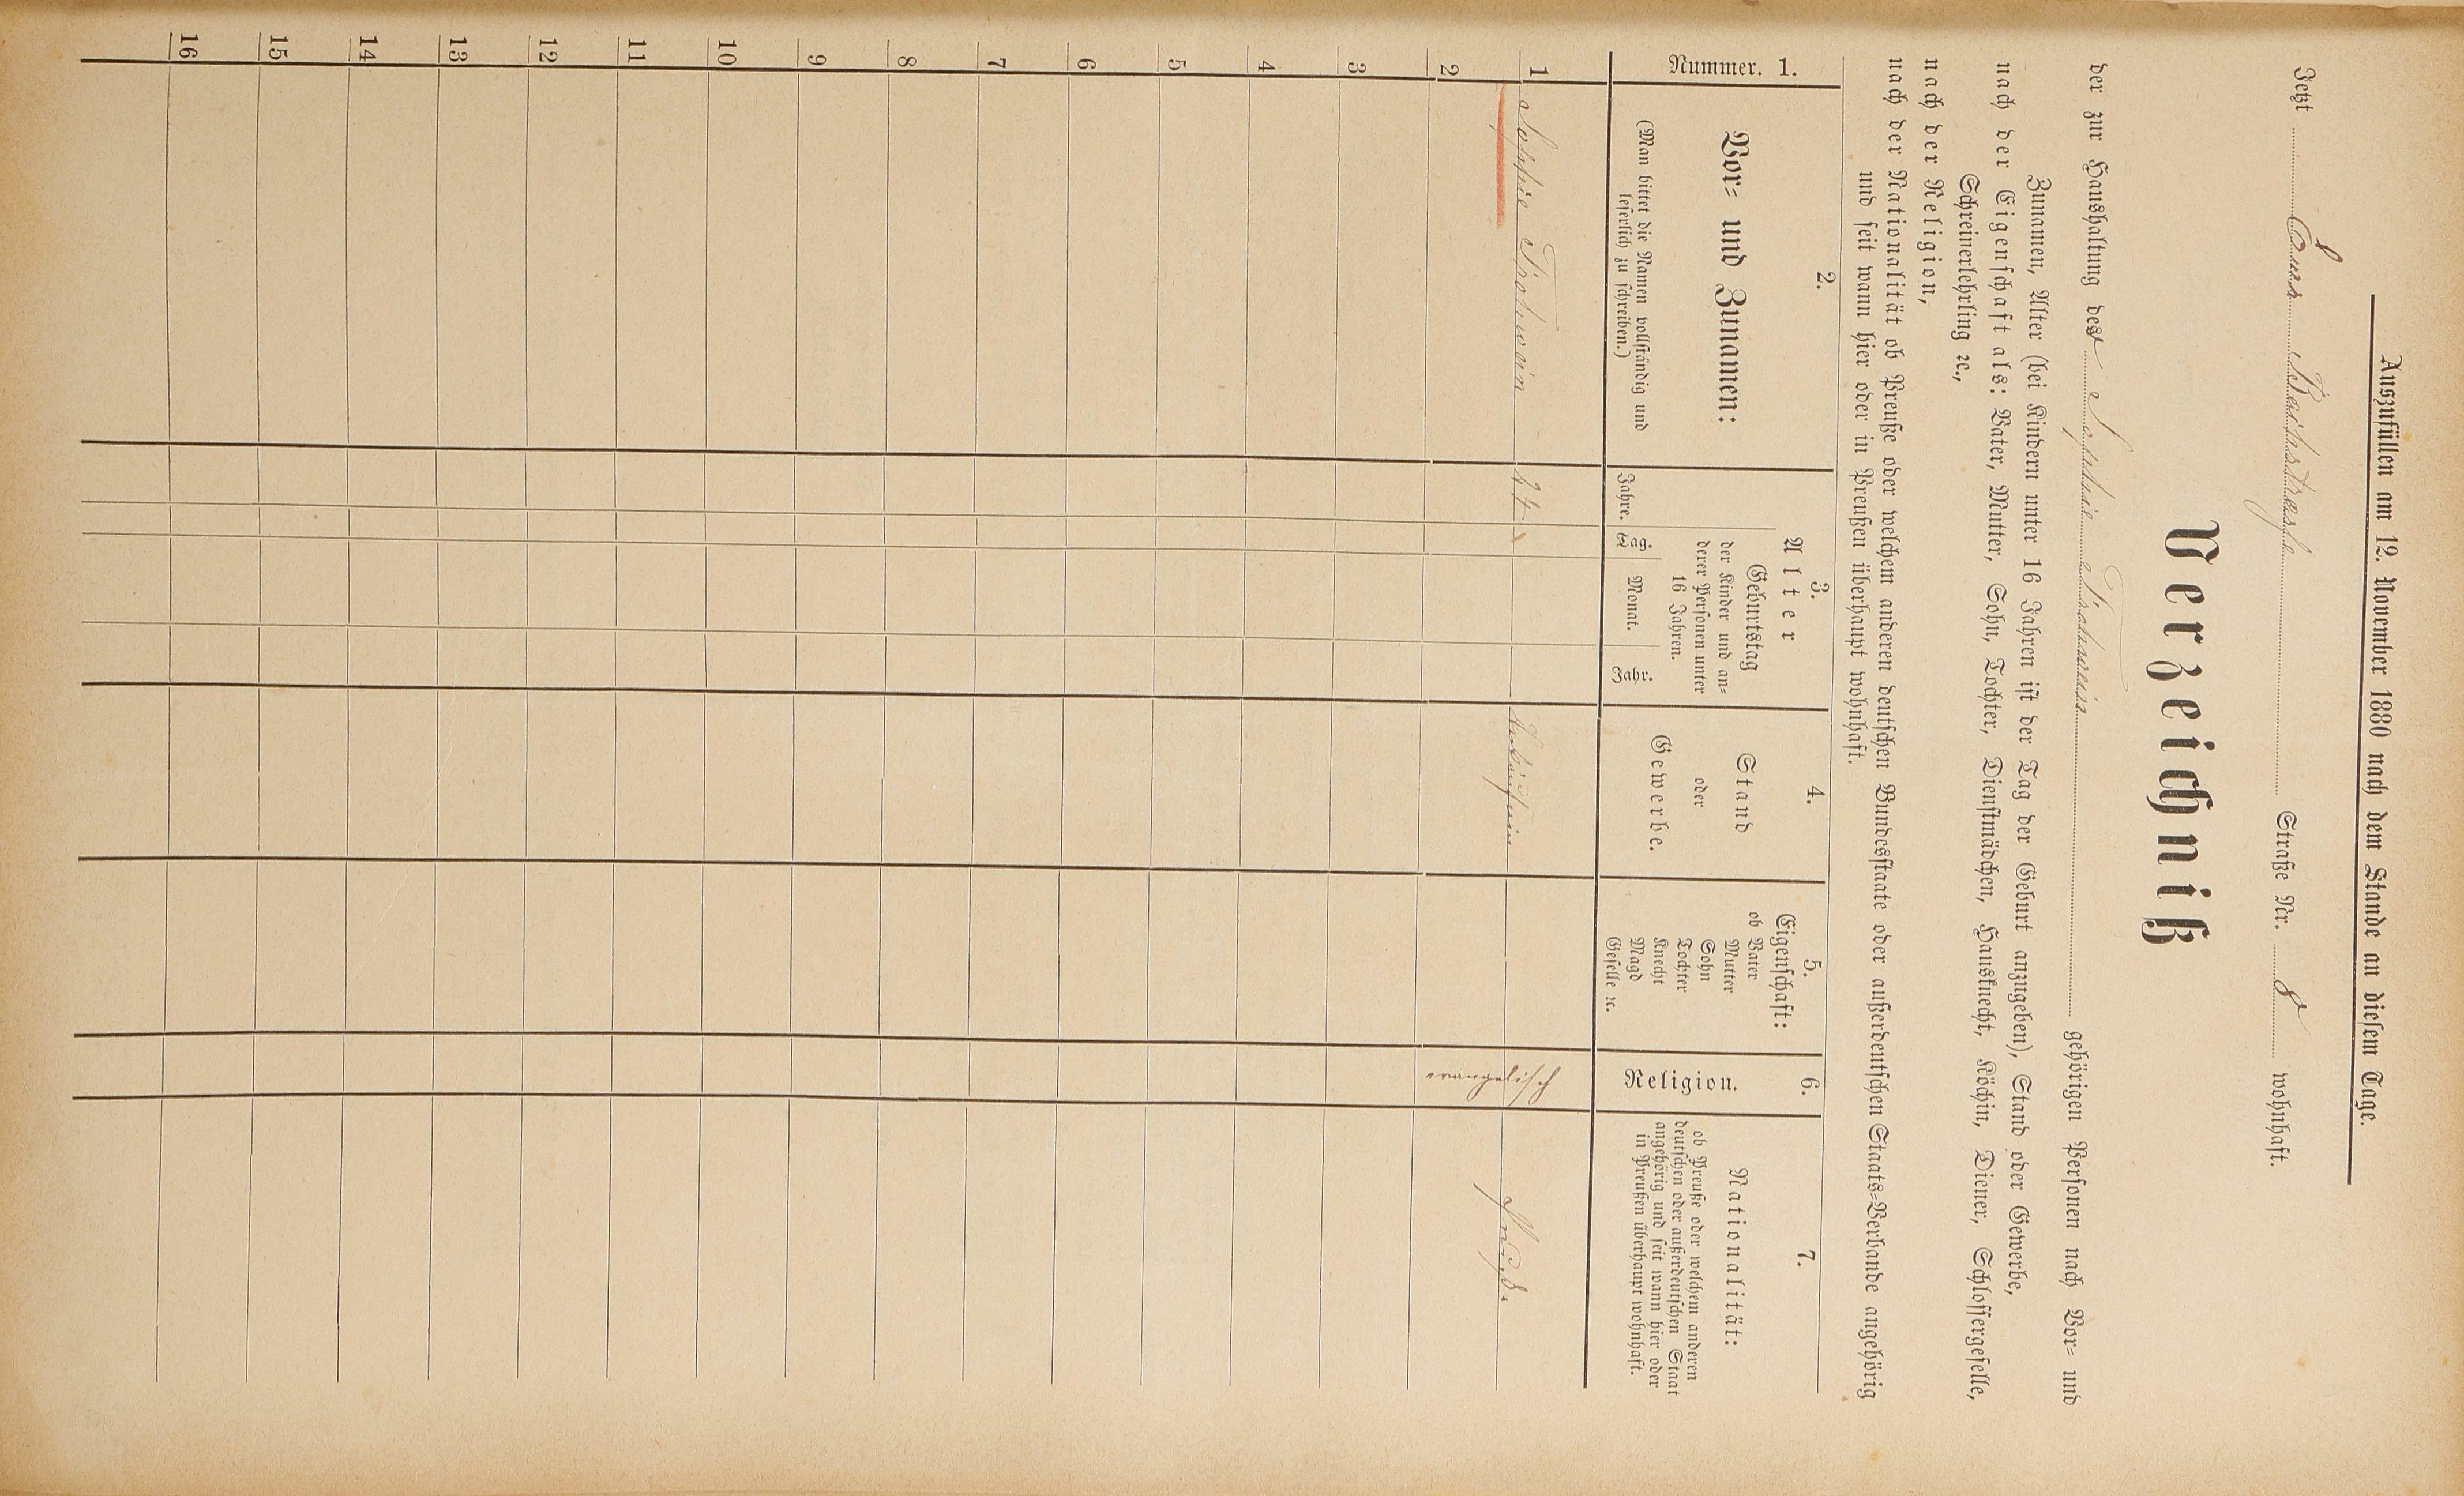 Auszufüllen am 12. November 1880 nach dem Stande an diesem Tage.
Jetzt Ems Bachstraße Straße Nr. 8 wohnhaft.
Verzeichniß
der zur Haushaltung der Sophie gehörigen Personen nach Vor- und
Zunamen, Alter (bei Kindern unter 16 Jahren ist der Tag der Geburt anzugeben), Stand oder Gewerbe,
nach der Eigenschaft als: Vater, Mutter, Sohn, Tochter, Dienstmädchen, Hausknecht, Köchin, Diener, Schlossergeselle,
Schreinerlehrling ꝛc.,
nach der Religion,
nach der Nationalität ob Preuße oder welchem anderen deutschen Bundesstaate oder außerdeutschen Staats-Verbande angehörig
und seit wann hier oder in Preußen überhaupt wohnhaft.
Nummer. 1.
2.
Vor- und Zunamen:
(Man bittet die Namen vollständig und
leserlich zu schreiben.)
3.
Alter
Geburtstag
der Kinder und an-
derer Personen unter
16 Jahren.
Jahre.
Tag.
Monat.
Jahr.
4.
Stand
oder
Gewerbe.
5.
Eigenschaft:
ob Vater
Mutter
Sohn
Tochter
Knecht
Magd
Geselle ꝛc.
6.
Religion.
7.
Nationalität:
ob Preuße oder welchem anderen
deutschen oder außerdeutschen Staat
angehörig und seit wann hier oder
in Preußen überhaupt wohnhaft.
1 Sophie evangelisch
2
3
4
5
6
7
8
9
10
11
12
13
14
15
16